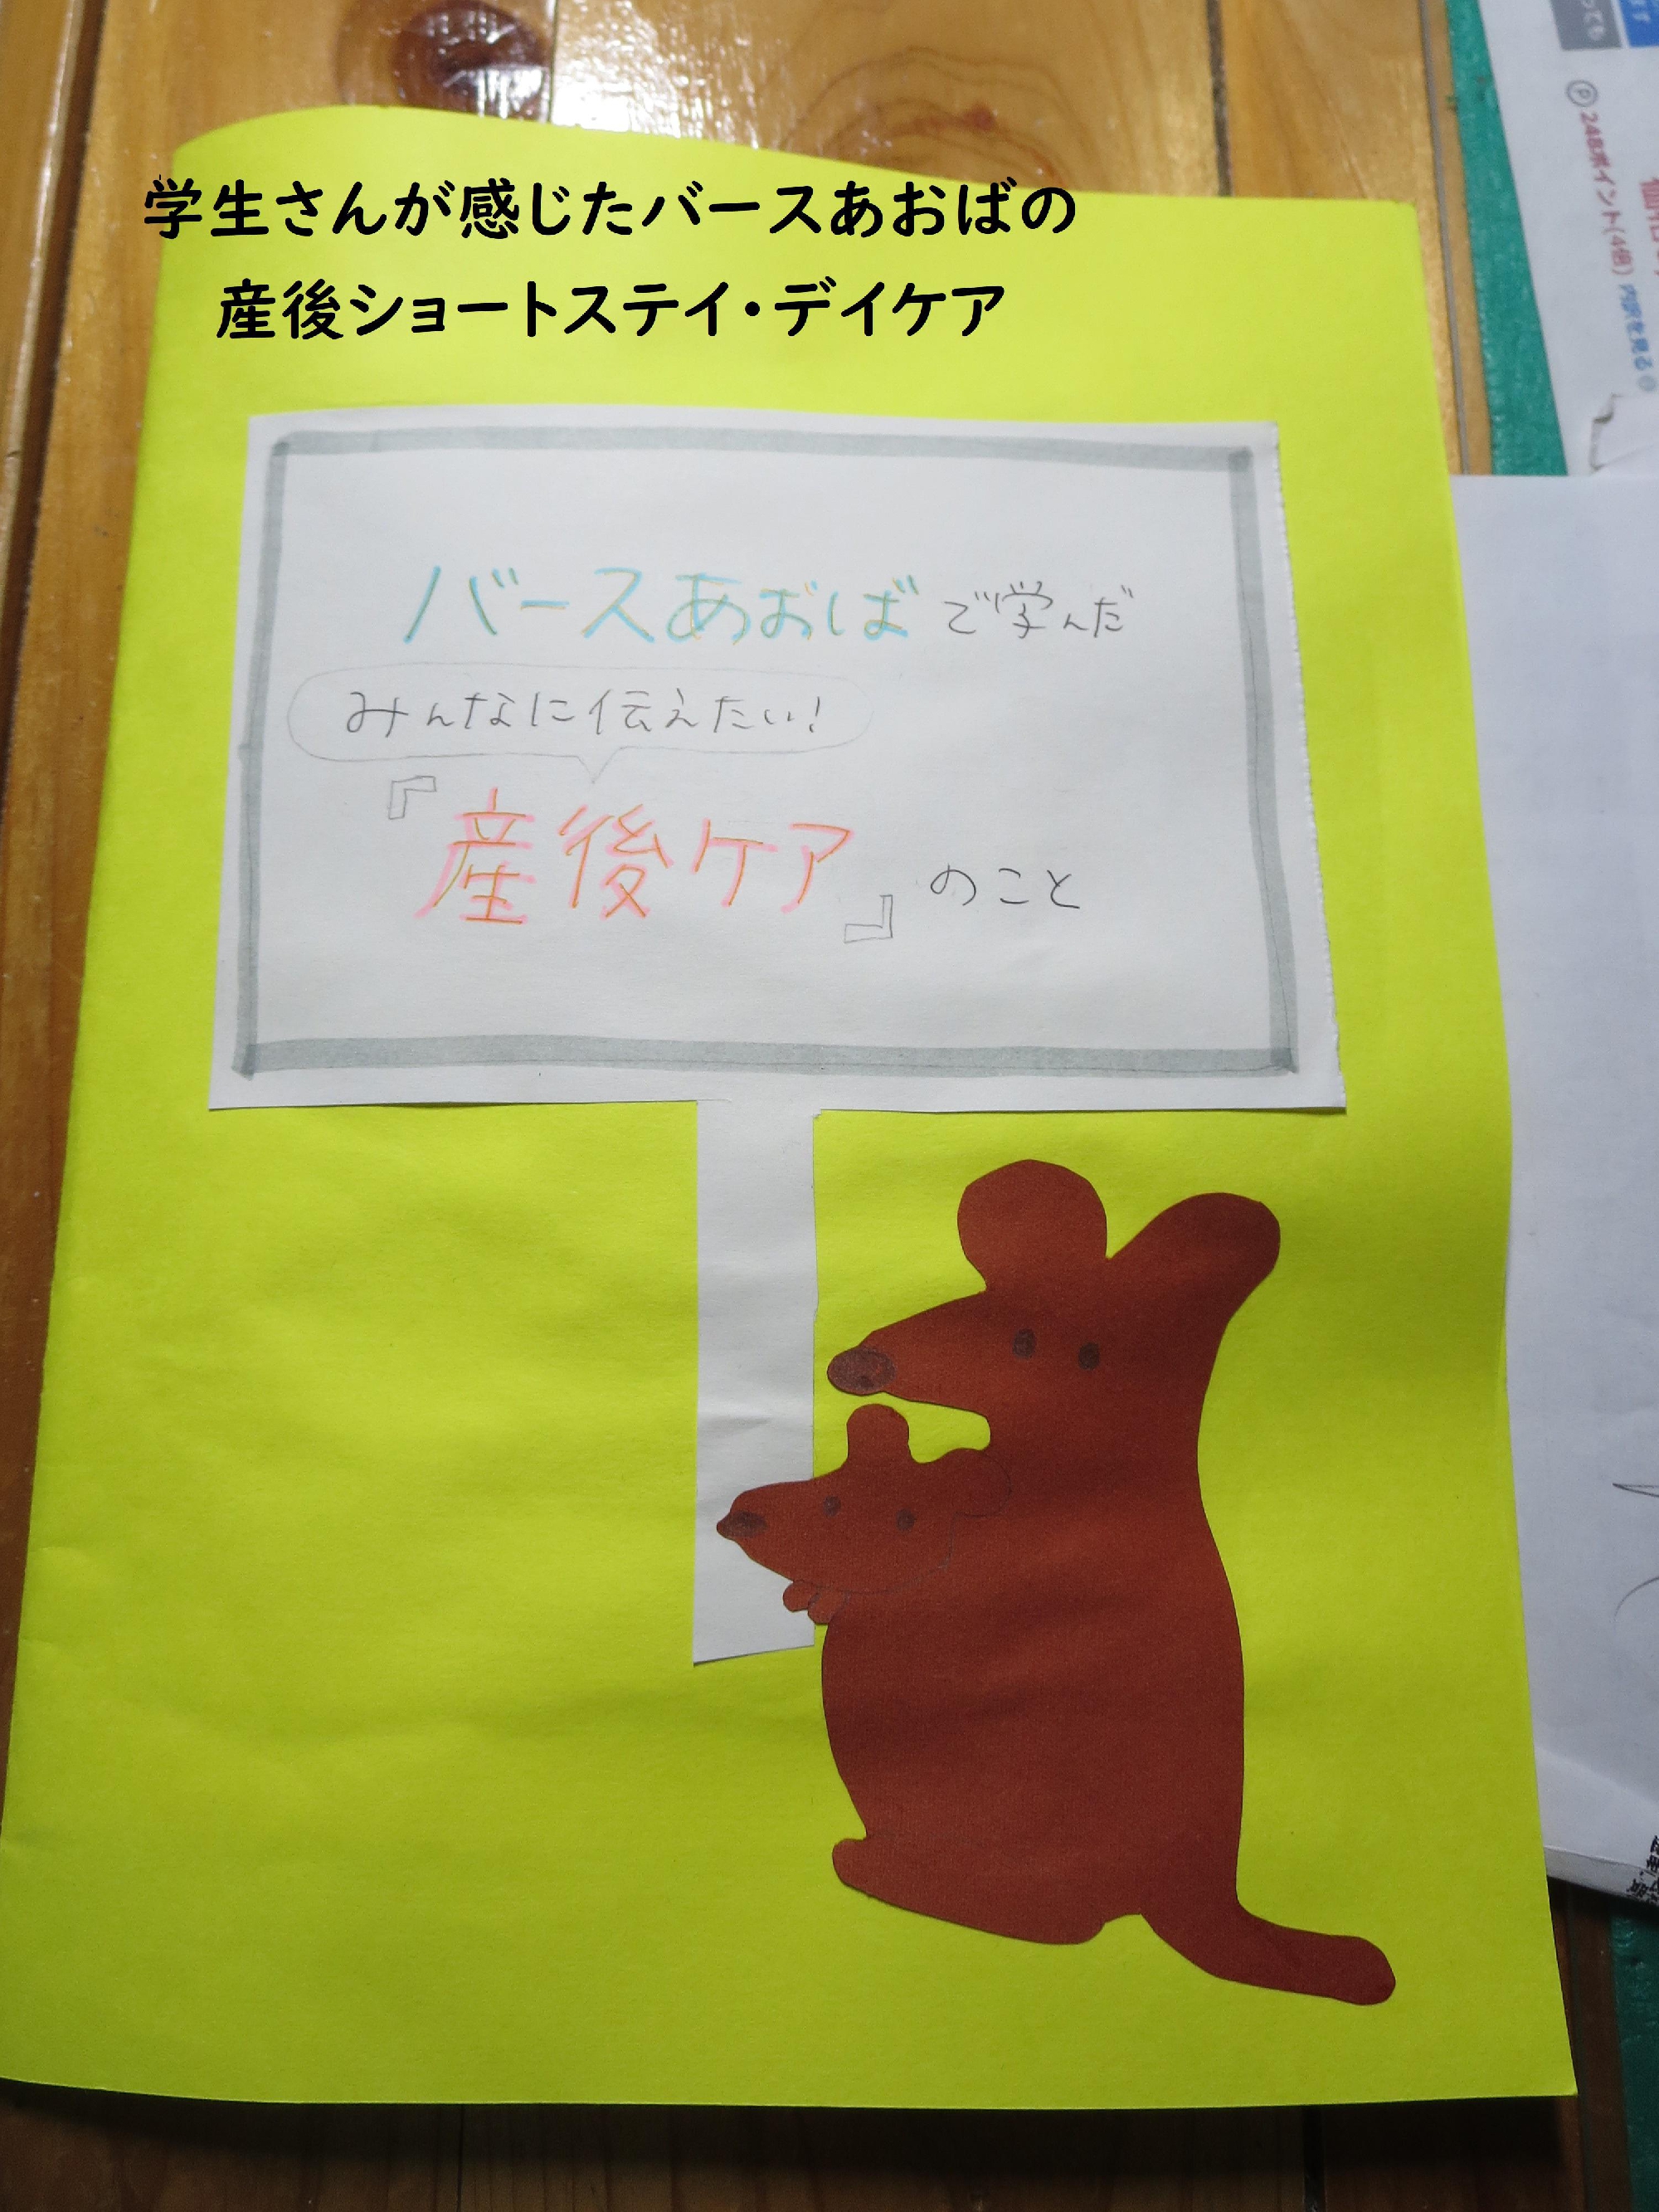 学生さんが感じたバースあおばの
産後ショートステイ・デイケア
バースあおばで学んだ
みんなに伝えたい!
『産後ケア』のこと
Ⓟ248ポイント(4倍) 内訳を見る